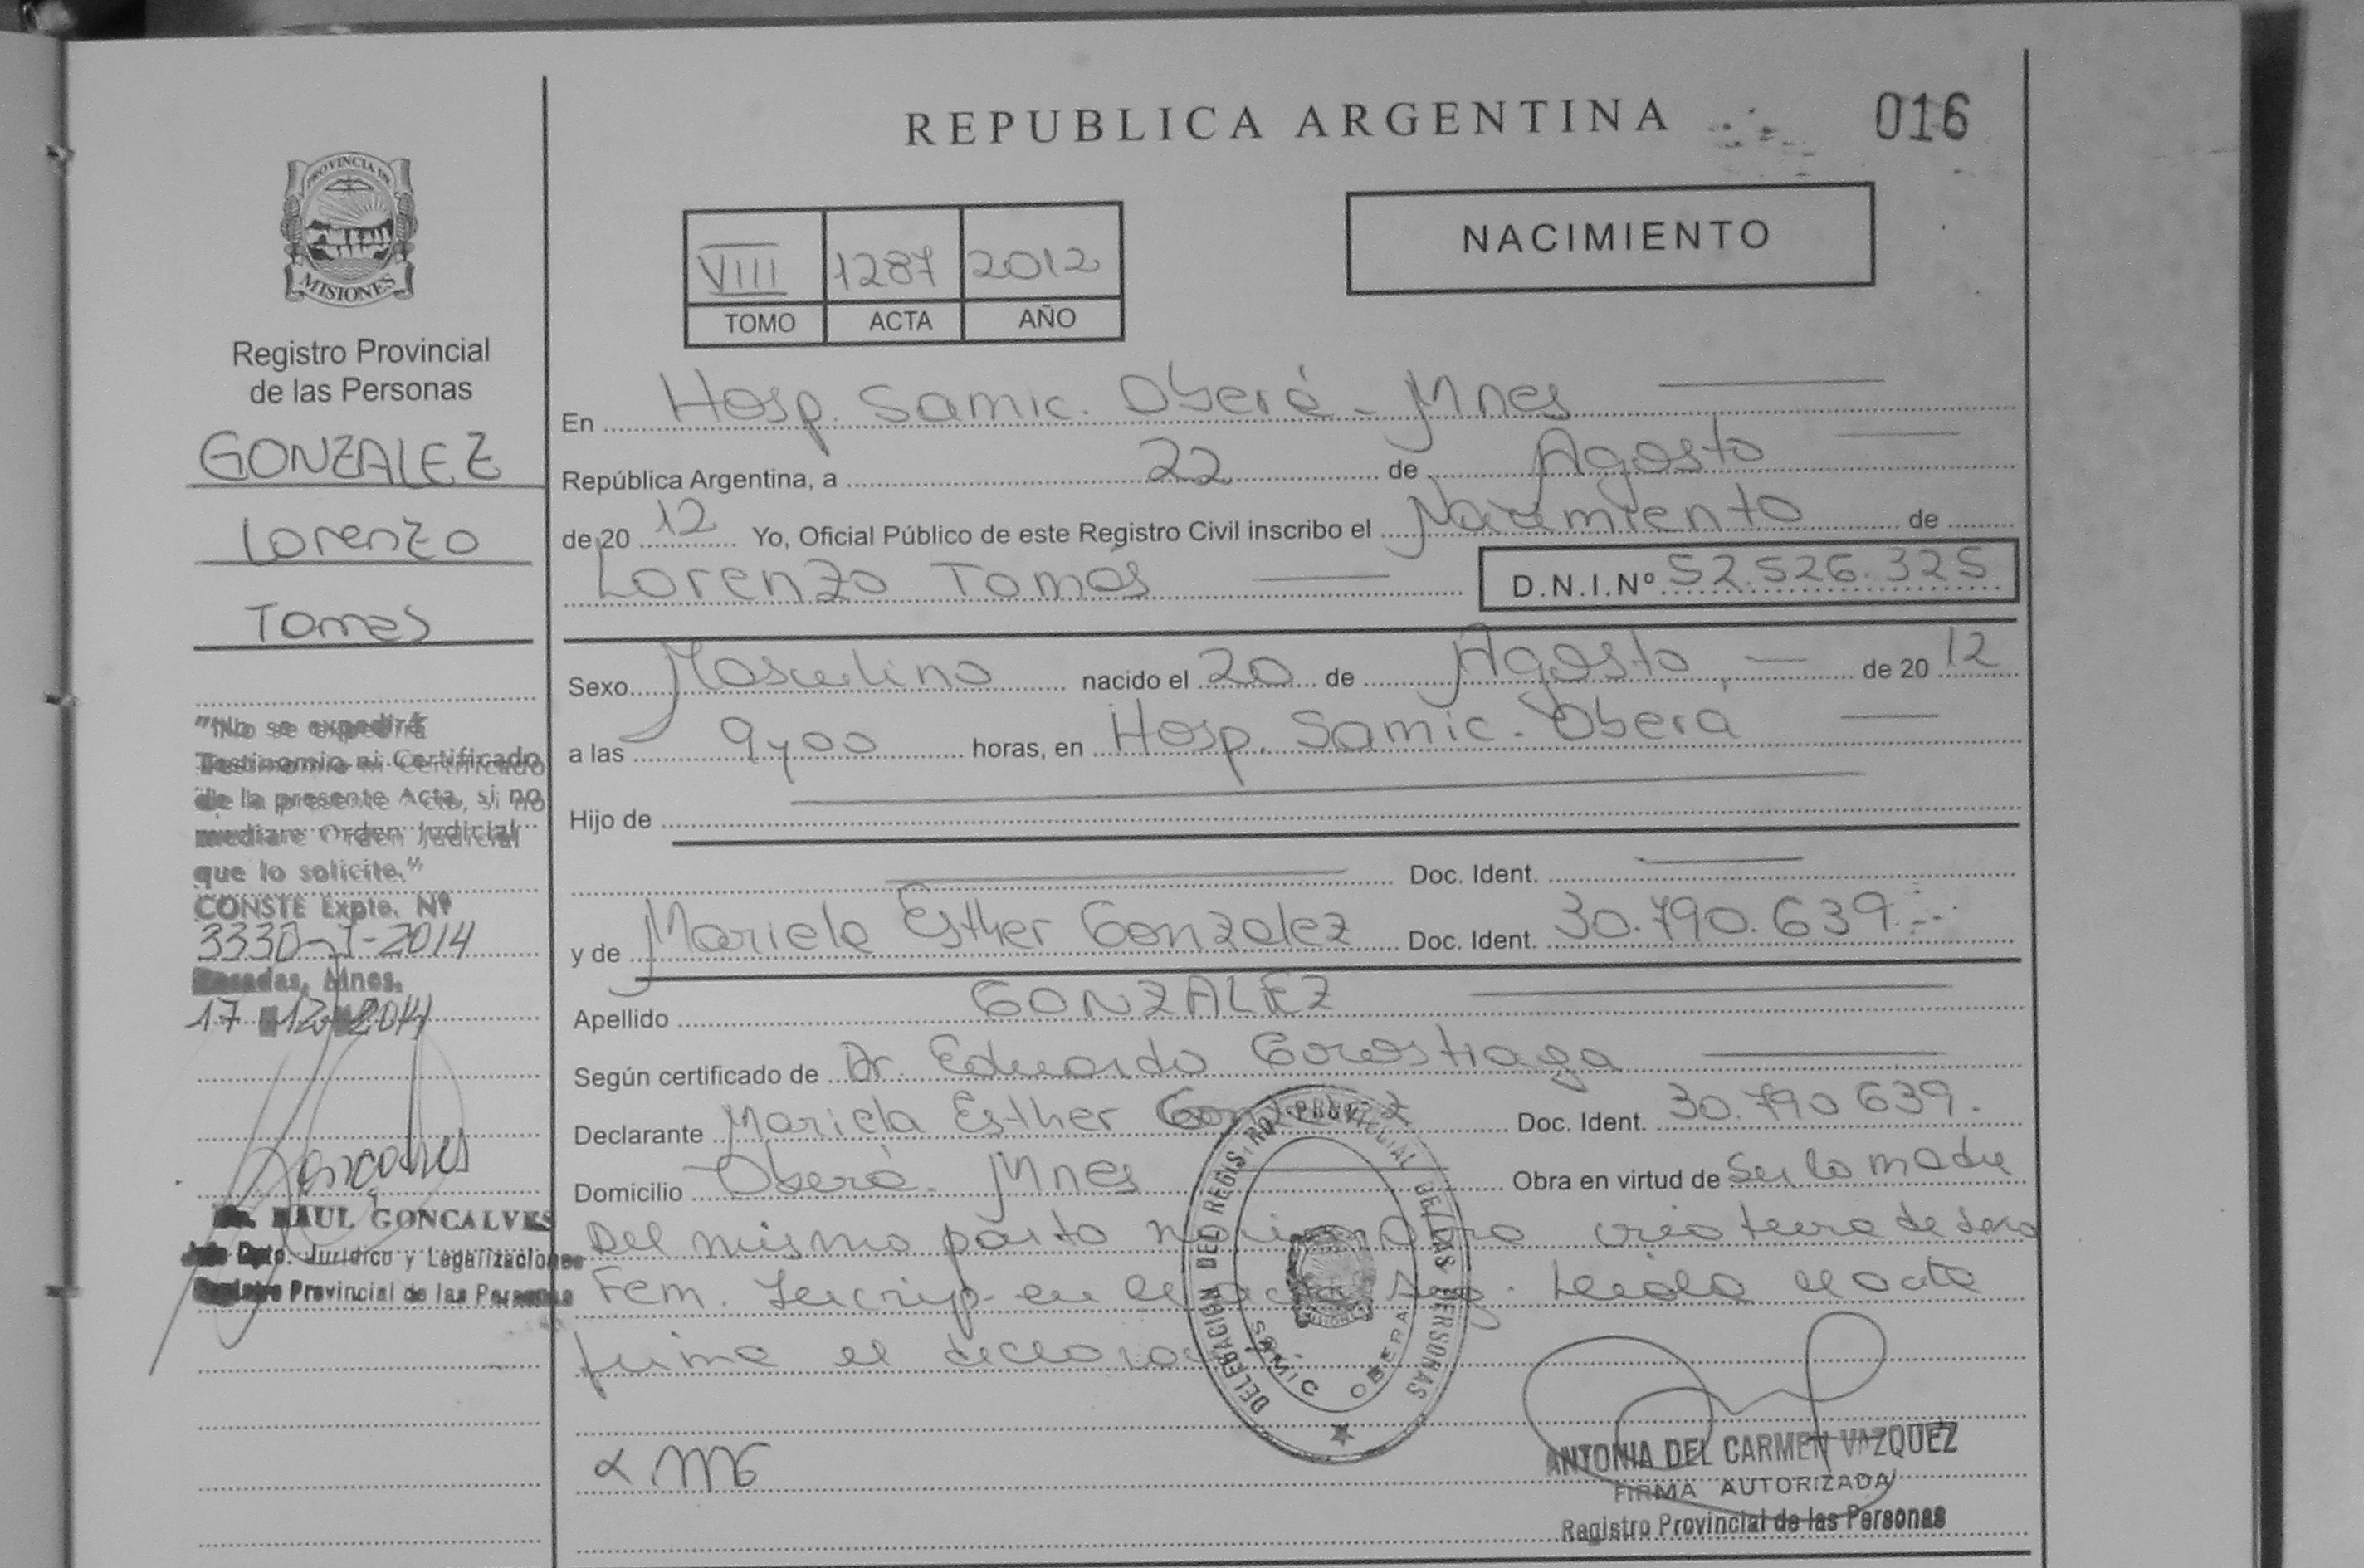 REPUBLICA ARGENTINA
016
PROVINCIA DE
MISIONES
Registro Provincial
de las Personas
GONZALEZ
Lorenzo
Tomas
"No se expedirá
Testimonio ni Certificado
de la presente Acta, si no
mediare Orden Judicial
que lo solicite."
CONSTE Expte. Nº
3330-J-2014
Posadas, Mnes.
17 12 2014
Gonçalves
Dr. RAUL GONCALVES
Jefe Dpto. Jurídico y Legalizaciones
Registro Provincial de las Personas
VIII 1287 2012
TOMO ACTA AÑO
NACIMIENTO
En Hosp. Samic. Oberá - Mnes
República Argentina, a 22 de Agosto
de 20 12 Yo, Oficial Público de este Registro Civil inscribo el Nacimiento de
Lorenzo Tomás D.N.I.Nº 52.526.325
Sexo Masculino nacido el 20 de Agosto de 20 12
a las 9 y 00 horas, en Hosp. Samic. Oberá
Hijo de
Doc. Ident.
y de Mariela Esther Gonzalez Doc. Ident. 30.790.639
Apellido GONZALEZ
Según certificado de Dr. Eduardo Gorostiaga
Declarante Mariela Esther Gonzalez Doc. Ident. 30.790 639.
Domicilio Oberá. Mnes Obra en virtud de Ser la madre
Del mismo parto otra criatura de sexo
Fem. Inscrip. en el acta Sig. Leida el acta
firma el
DELEGACION DEL REGISTRO PROVINCIAL DE LAS PERSONAS
SAMIC OBERA
ANTONIA DEL CARMEN VAZQUEZ
FIRMA AUTORIZADA
Registro Provincial de las Personas